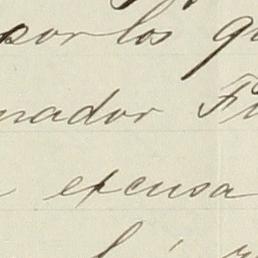 por los qu
nador Fi
excusa